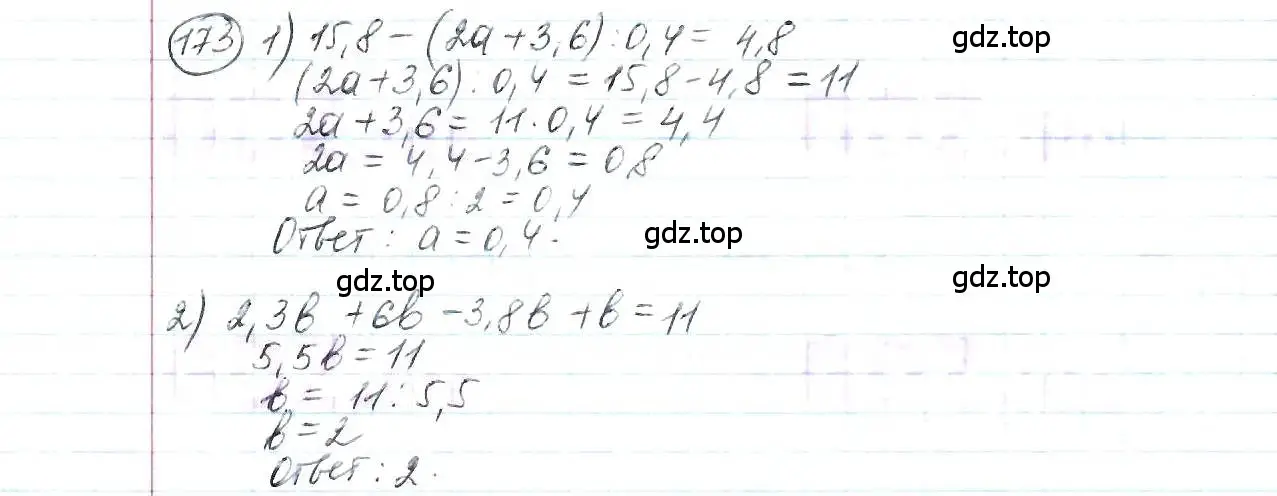 173 1) 15,8 - (2a + 3,6) : 0,4 = 4,8
(2a + 3,6) : 0,4 = 15,8 - 4,8 = 11
2a + 3,6 = 11 · 0,4 = 4,4
2a = 4,4 - 3,6 = 0,8
a = 0,8 : 2 = 0,4
Ответ: a = 0,4.
gdz.top
gdz.top
gdz.top
2) 2,3b + 6b - 3,8b + b = 11
5,5b = 11
b = 11 : 5,5
b = 2
Ответ: 2.